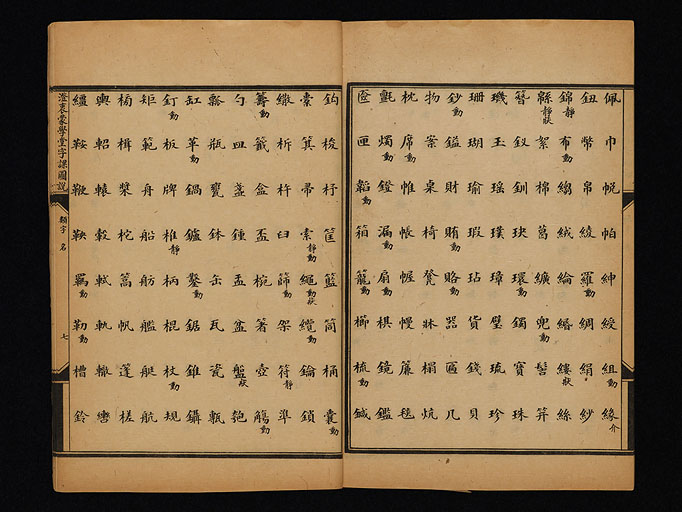 佩巾帨帕紳綬組動緣介
鈕幣帛綾羅動綢絹紗
錦靜布動縐絨綸緡縷狀絲
緜靜狀絮棉葛纊兜動髻笄
簪釵釧玦環動鐲寶珠
璣玉瑤璞璋璧琉珍
珊瑚瑜瑕玷貨錢貝
鈔動鎰財賄動賂動器匾几
物案桌椅凳牀榻炕
枕席動帷帳幄幔簾毯
氈燭動鐙漏動扇動棋鏡鑑
匳匣韜動箱籠動櫛梳動鍼
鉤梭杼筐籃筒桶囊動
橐箕帚索靜動繩動狀纜動鑰鎖
繖析杵臼篩動架符靜準
籌動籤盒盃椀箸壺觴動
勺皿盞鍾盂盆盤狀匏
瓢瓶甕鉢缶瓦瓷甑
缸革動鍋鑪鑿動鋸錐鑷
釘動板牌椎靜柄棍杖動規
矩範舟船舫艦艇航
槅楫槳柁篙帆蓬槎
輿軺轅轂軾軌轍轡
繮鞍鞭鞅羈動勒動槽鈴
澄衷蒙學堂字課圖說
類字 名
七